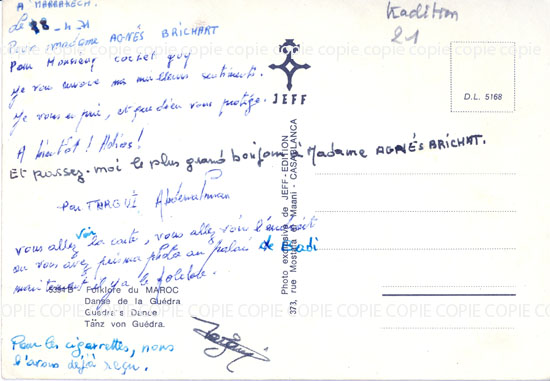 A MARRAKECH.
Le 28-4-71
Pour madame AGNÉS BRICHART
Pour Monsieur cochet guy
je vous envoie mes meilleurs sentiments.
Je vous en prie, et que dieu vous protège.
A bientôt! Adios!
Et passez-moi le plus grand bonjour à Madame AGNÉS BRICHAT.
Par TARGUI Abderrahman
vous allez voir la carte, vous allez voir l'endroit
ou vous avez pris ma photo au palais de Badi
maintenant il y a le folklore.
Pour les cigarettes, nous
l'avons déjà reçu.
Kadition
21
JEFF
D.L. 5168
Photo exclusive de JEFF-EDITION
373, rue Mostafa El Maani - CASABLANCA
Folklore du MAROC
Danse de la Guédra
Guedra's Dance
Tänz von Guédra.
COPIE COPIE COPIE COPIE COPIE COPIE COPIE